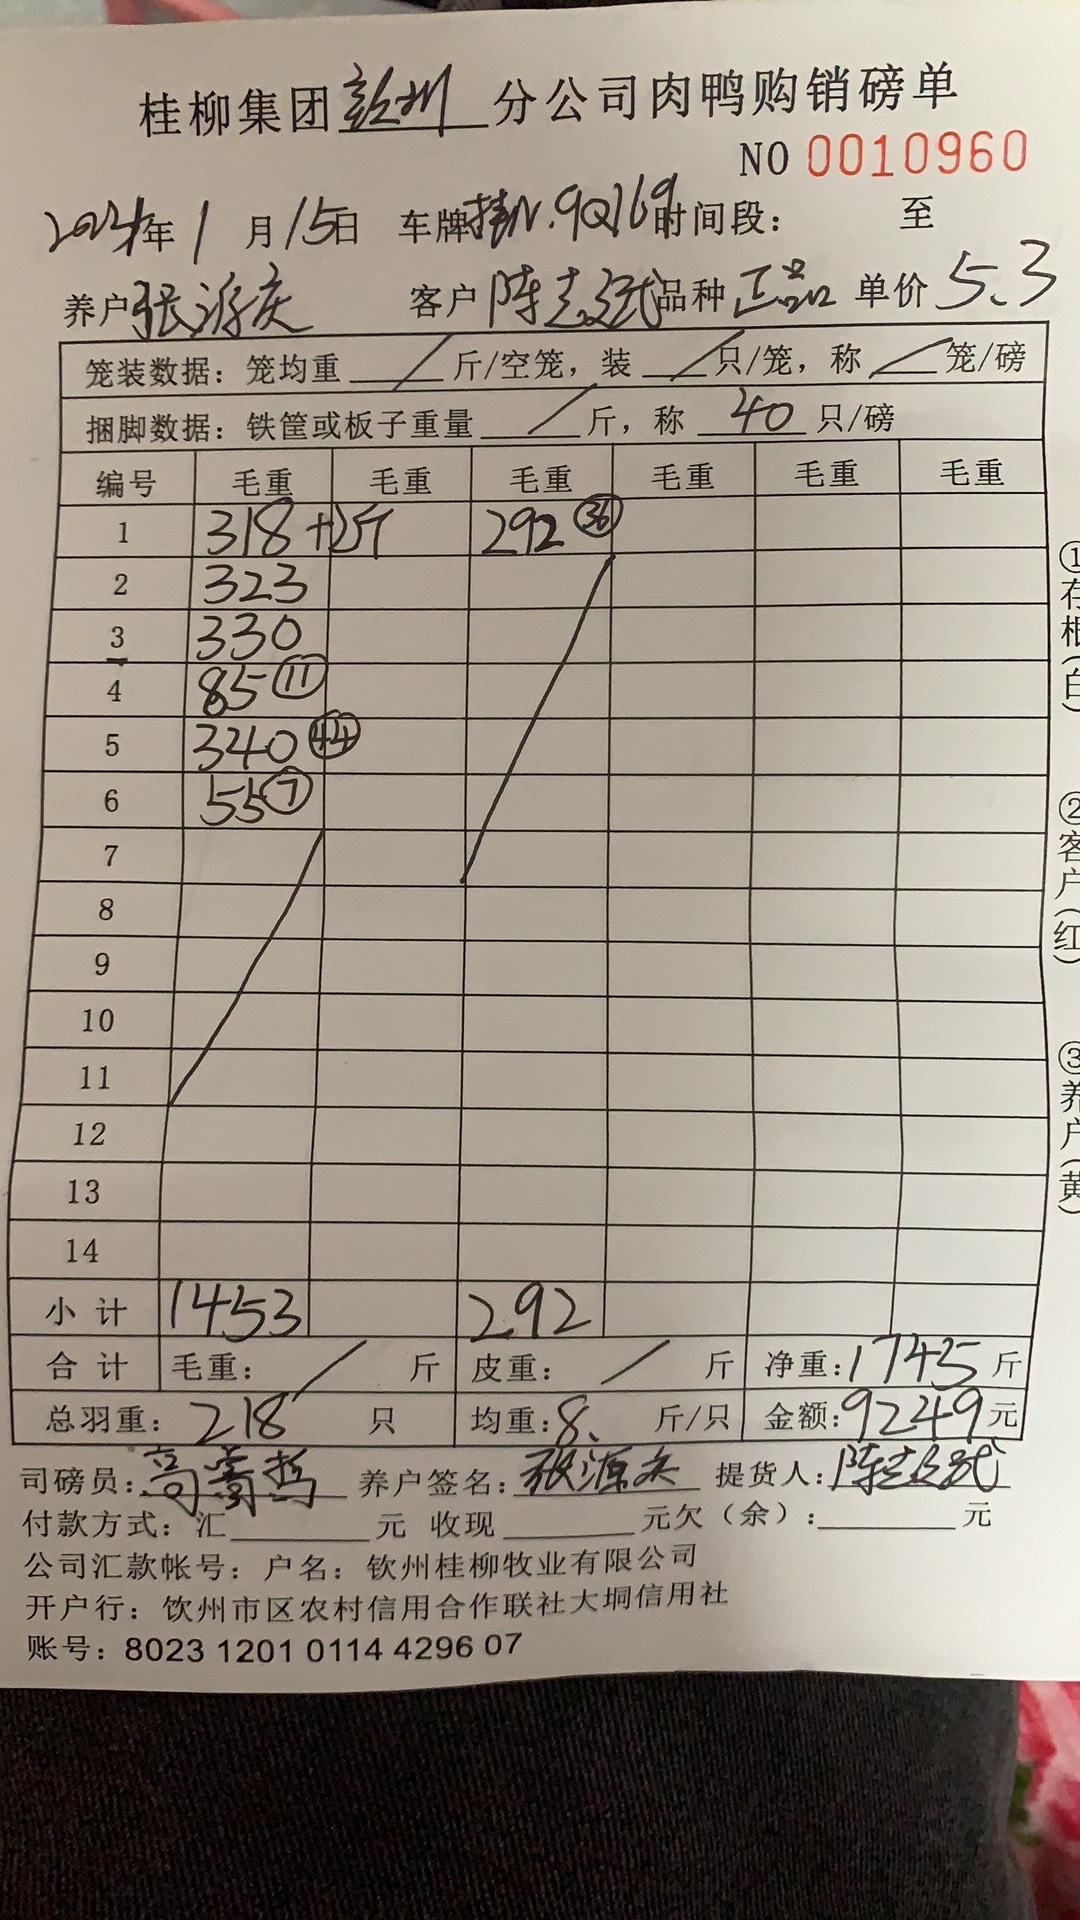 桂柳集团彭州分公司肉鸭购销磅单
NO 0010960
2024年1月15日 车牌桂N.9Q169时间段： 至
养户张源庆 客户陈志强品种正品 单价5.3
笼装数据：笼均重／斤/空笼，装／只/笼，称／笼/磅
捆脚数据：铁筐或板子重量／斤，称 40 只/磅
编号 毛重 毛重 毛重 毛重 毛重 毛重
1 318+2斤 292㊱
2 323
3 330
4 85⑪
5 340㊹
6 55⑦
7
8
9
10
11
12
13
14
小计 1453 292
合计 毛重：／斤 皮重：／斤 净重：1745斤
总羽重：218 只 均重：8、斤/只 金额：9249元
司磅员：高 哲 养户签名：张源庆 提货人：陈志强
付款方式：汇 元 收现 元欠（余）： 元
公司汇款帐号：户名：钦州桂柳牧业有限公司
开户行：钦州市区农村信用合作联社大垌信用社
账号：8023 1201 0114 4296 07
①存根（白）
②客户（红）
③养户（黄）